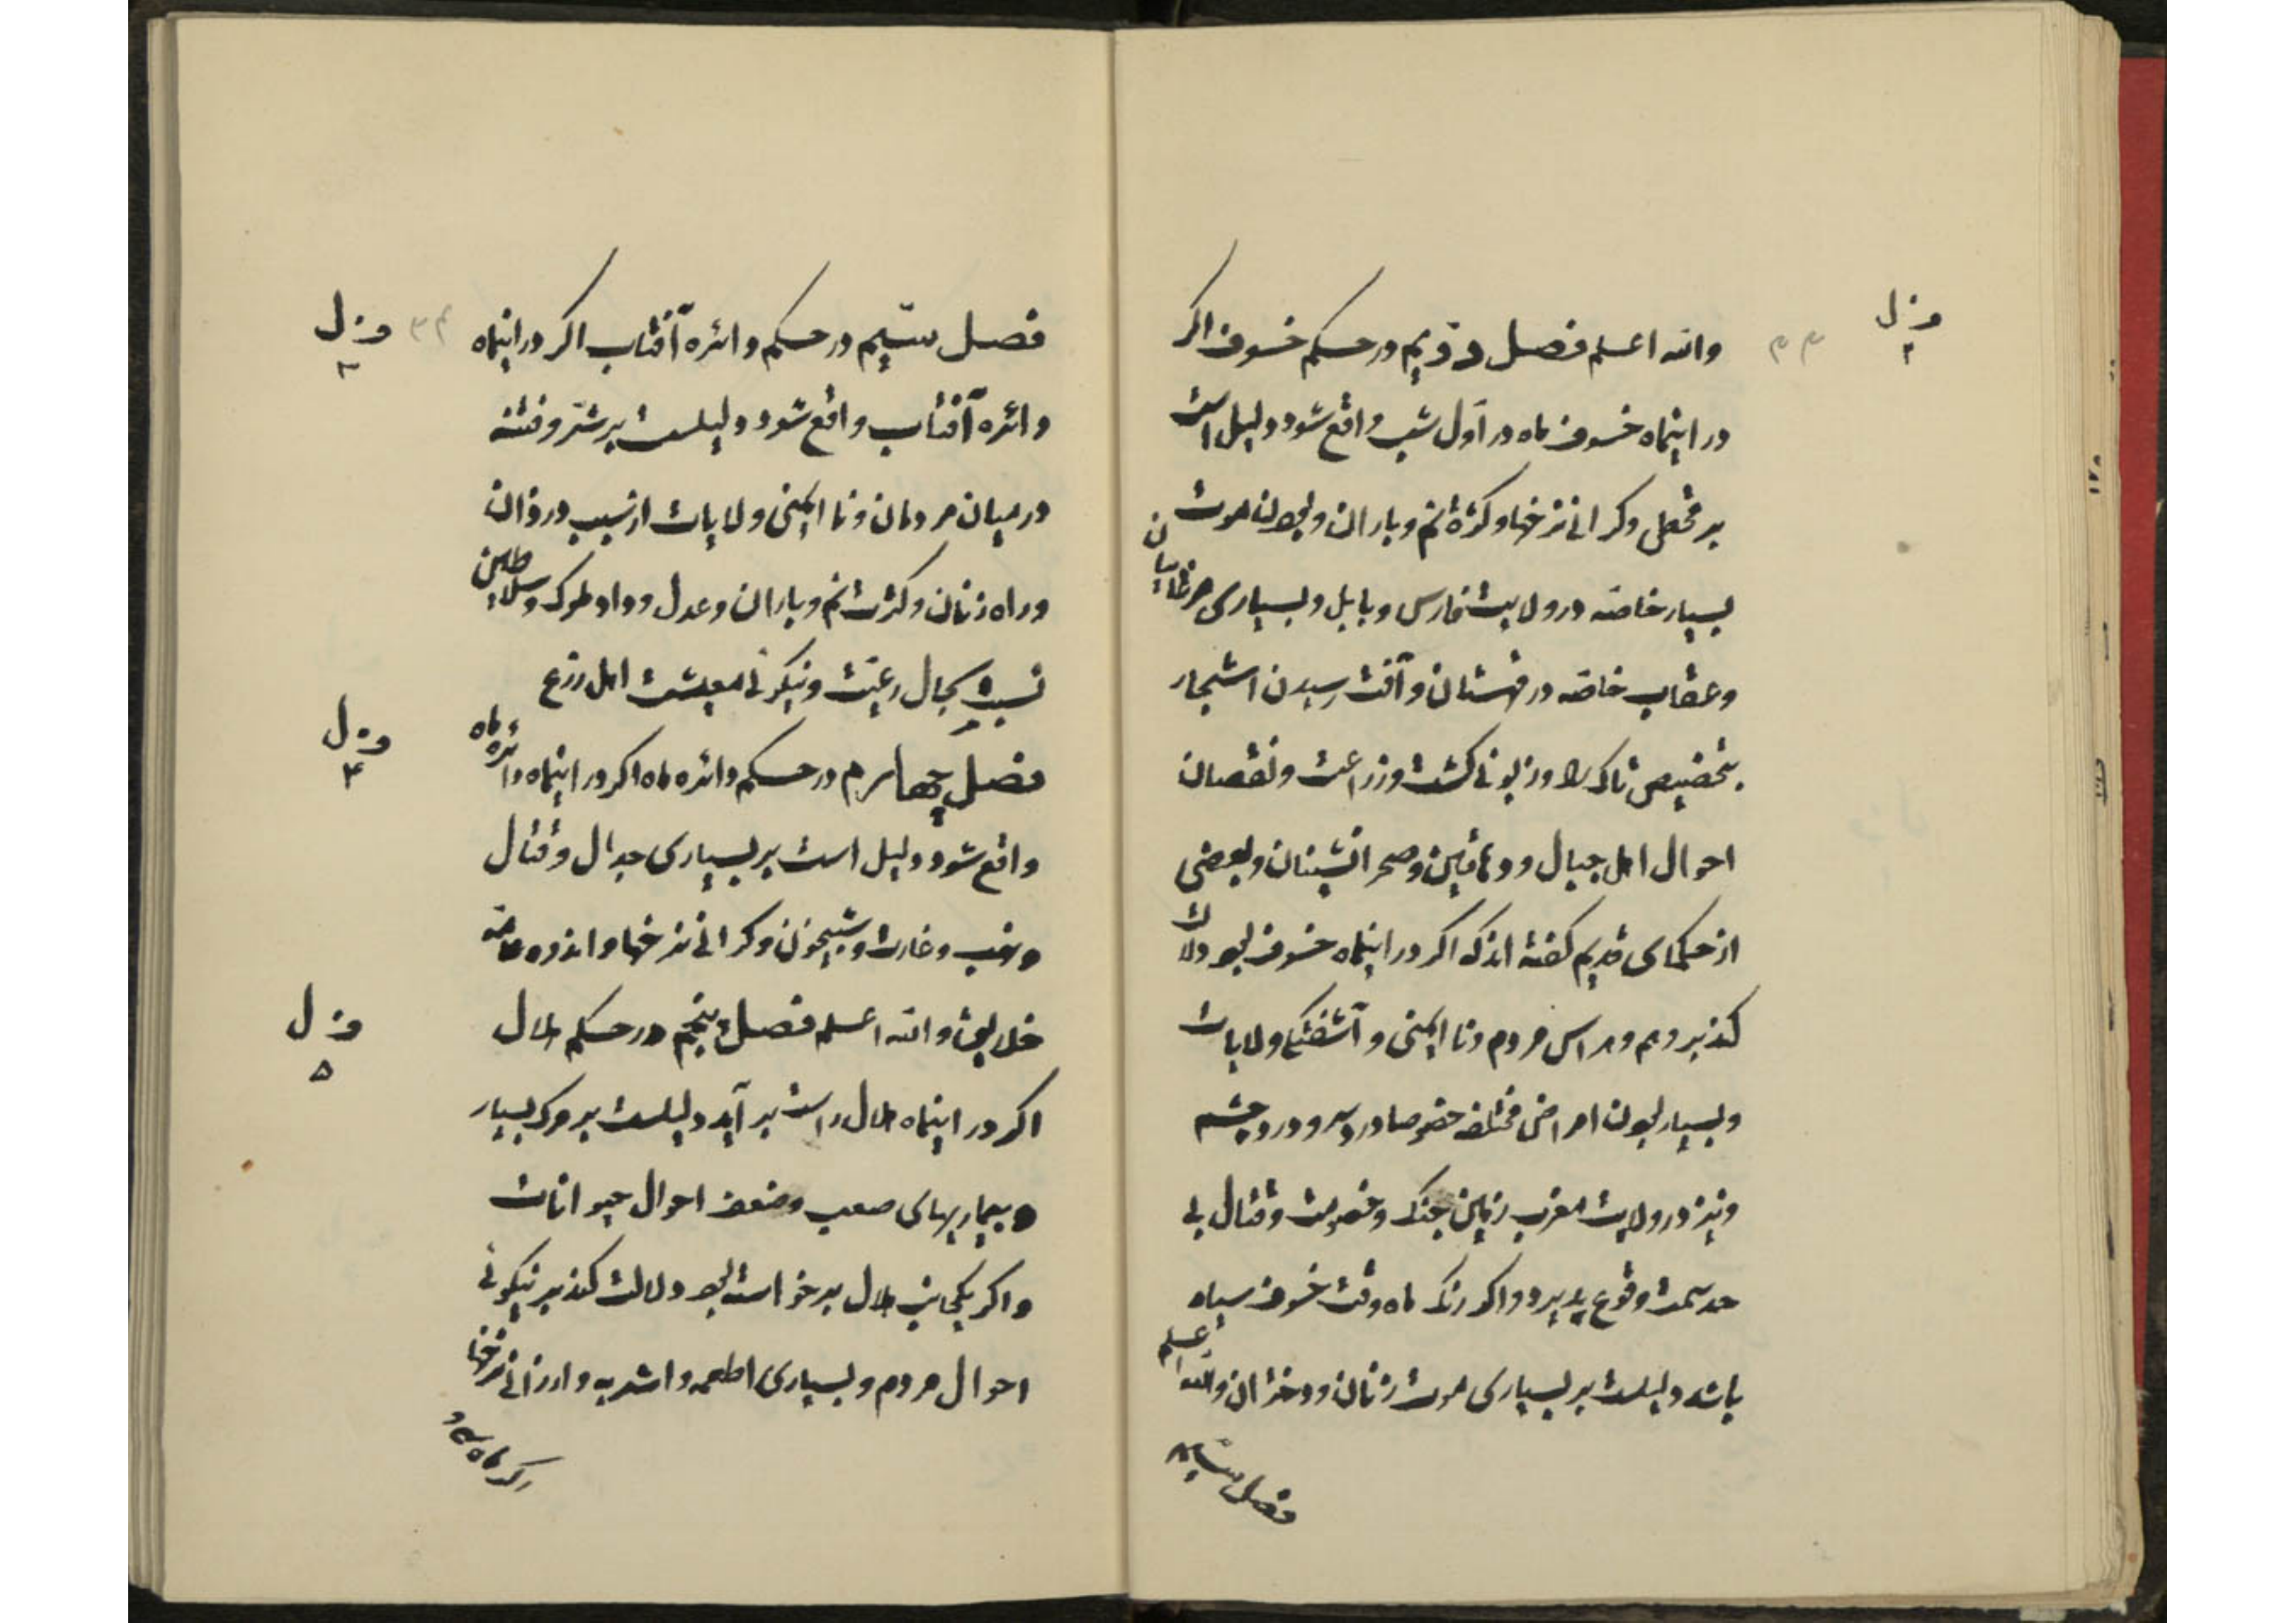 فصل ۲
۳۳
والله اعلم فصل دویم در حکم خسوف اکر
در اینماه خسوف ماه در اول شب واقع شود دلیل است
بر قحطی و کرانی نرخها و کثرة نم و باران و بودن موت
بسیار خاصه در ولایت فارس و بابل و بسیاری مرغابیان
و عقاب خاصه در قهستان و آفت رسیدن اشجار
بتخصیص تاک را و زبونی کشت و زراعت و نقصان
احوال اهل جبال و دهاقین و صحرانشینان و بعضی
از حکمای قدیم کفته اند که اکر در اینماه خسوف بود دلالت
کند بر وهم و هراس مردم و نا ایمنی و آشفتکی ولایات
و بسیار بودن امراض مختلفه خصوصا درد سر و درد چشم
و نیز در ولایت مغرب زمین جنک و خصومت و قتال بی
حد سمت وقوع پذیرد و اکر رنک ماه وقت خسوف سیاه
باشد دلیلست بر بسیاری موت زنان و دختران والله اعلم
فصل سیم
فصل ۳
۳۴
فصل سیم در حکم دائره آفتاب اکر در اینماه
دائره آفتاب واقع شود دلیلست بر شر و فتنه
در میان مردمان و نا ایمنی ولایات از سبب دزدان
و راه زنان و کثرت نم و باران و عدل و داد ملوک و سلاطین
نسبت بحال رعیت و نیکوئی معیشت اهل زرع
فصل ۴
فصل چهارم در حکم دائره ماه اکر در اینماه دائره ماه
واقع شود دلیل است بر بسیاری جدال و قتال
و نهب و غارت و شبیخون و کرانی نرخها و اندوه عامه
فصل ۵
خلایق والله اعلم فصل پنجم در حکم هلال
اکر در اینماه هلال راست بر آید دلیلست بر مرک بسیار
و بیماریهای صعب و ضعف احوال حیوانات
و اکر یکجانب هلال برخواسته بود دلالت کند بر نیکوئی
احوال مردم و بسیاری اطعمه و اشربه و ارزانی نرخها